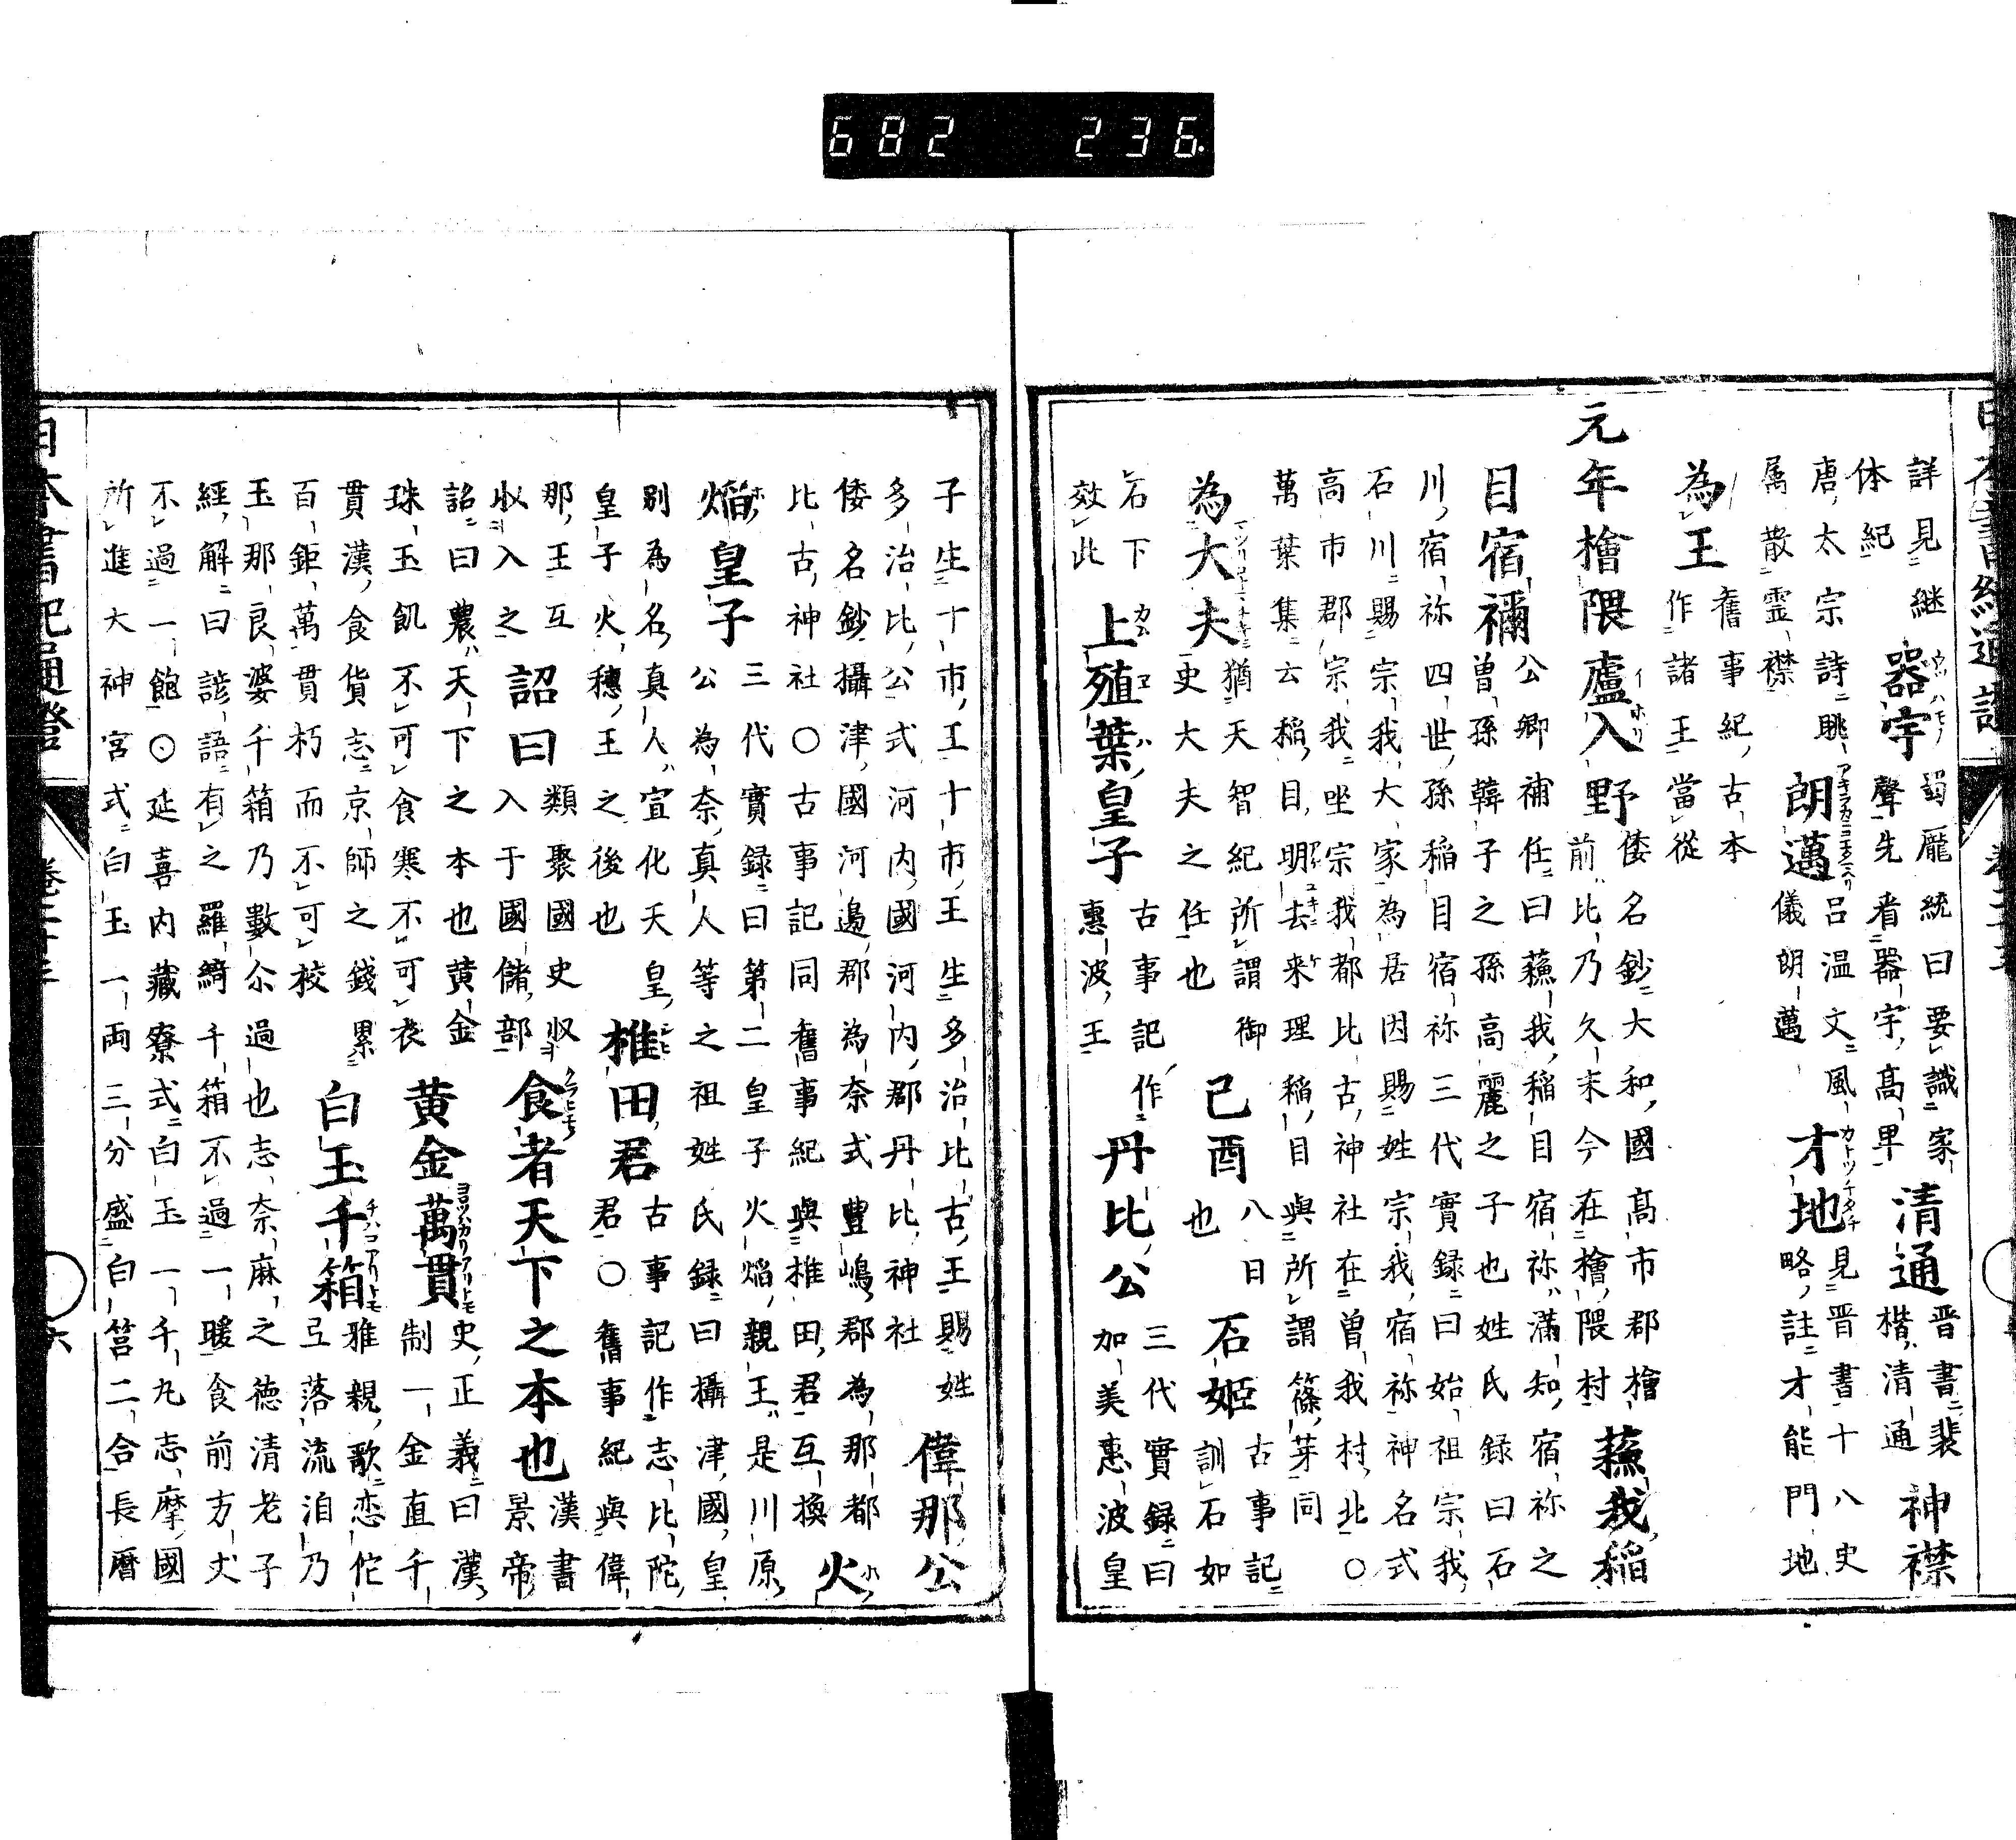 682 236
詳見継
体紀
器宇
蜀龐統曰要識家
聲先看器宇高卑
清通
晋書裴
楷清通
神襟
唐太宗詩眺
属散霊襟
朗邁
呂温文風
儀朗邁
才地
見晋書十八史
略註才能門地
為王
舊事紀古本
作諸王當從
元年檜隈廬入野
倭名鈔大和國高市郡檜
前比乃久末今在檜隈村
蘓我稲
目宿禰
公卿補任曰蘓我稲目宿祢滿知宿祢之
曽孫韓子之孫高麗之子也姓氏録曰石
川宿祢四世孫稲目宿祢三代實録曰始祖宗我
石川賜宗我大家為居因賜姓宗我宿祢神名式
高市郡宗我坐宗我都比古神社在曽我村北〇
萬葉集云稲目明去来理稲目與所謂篠芽同
為大夫
猶天智紀所謂御
史大夫之任也
己酉
八日
也
石姫
古事記
訓石如
石下
效此
上殖葉皇子
古事記作
惠波王
丹比公
三代實録曰
加美惠波皇
子生十市王十市王生多治比古王賜姓
多治比公式河内國河内郡丹比神社
偉那公
倭名鈔攝津國河邊郡為奈式豊嶋郡為那都
比古神社〇古事記同舊事紀與椎田君互換
火
焔皇子
三代實録曰第二皇子火焔親王是川原
公為奈真人等之祖姓氏録曰攝津國皇
別為名真人宣化天皇
皇子火穗王之後也
椎田君
古事記作志比陀
君〇舊事紀與偉
那王互
詔曰
類聚國史収
収入之
入于國儲部
食者天下之本也
漢書
景帝
詔曰農天下之本也黄金
珠玉飢不可食寒不可衣
黄金萬貫
史正義曰漢
制一金直千
貫漢食貨志京師之錢累
百鉅萬貫朽而不可校
白玉千箱
雅親歌恋佗
弖落流泪乃
玉那良婆千箱乃數尒過也志奈麻之徳清老子
經解曰諺語有之羅綺千箱不過一暖食前方丈
不過一飽〇延喜内藏寮式白玉一千丸志摩國
所進大神宮式白玉一両三分盛白筥二合長暦
日本書紀通證
六